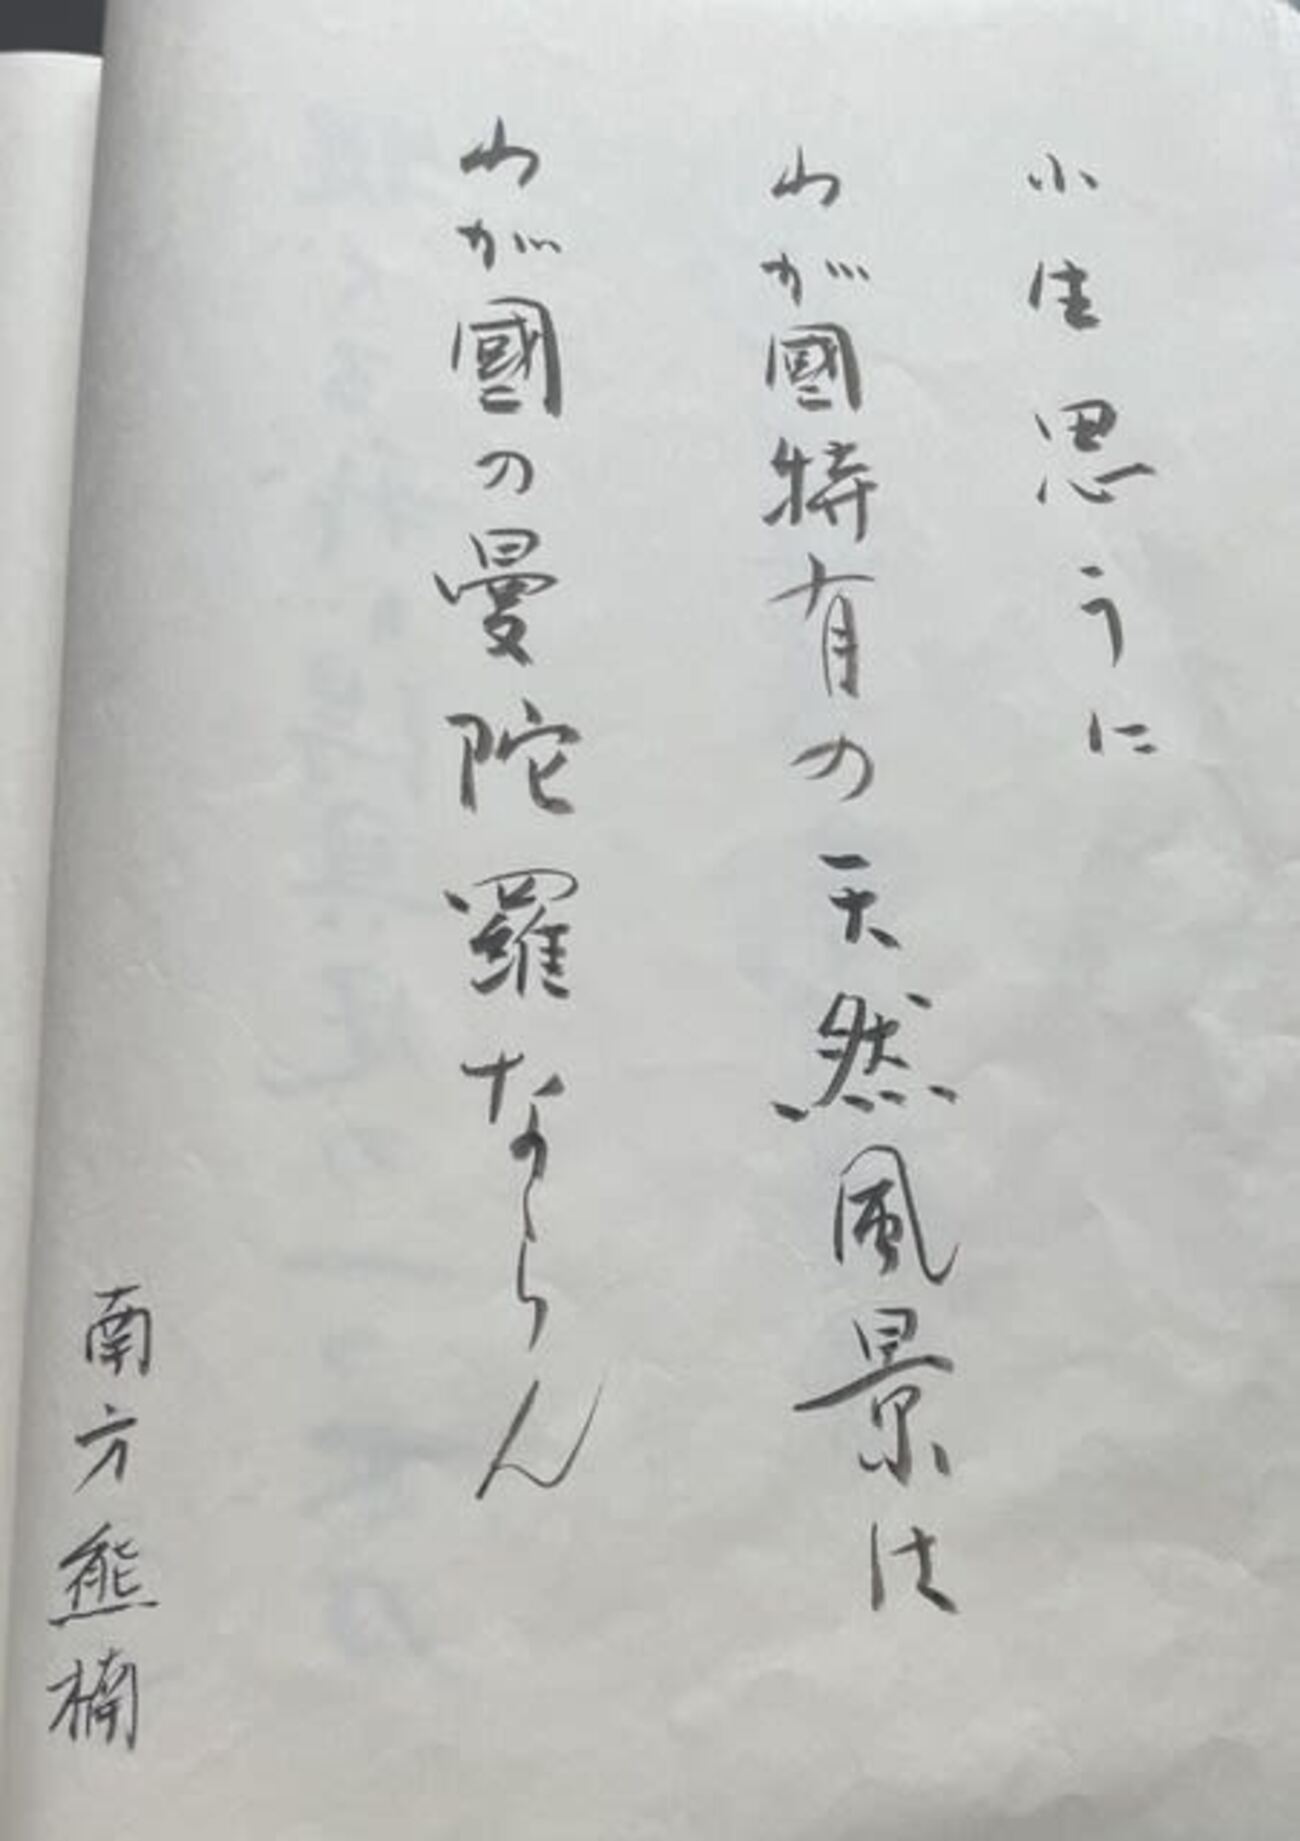 小生思うに
わが國特有の天然風景は
わが國の曼陀羅ならん
南方熊楠